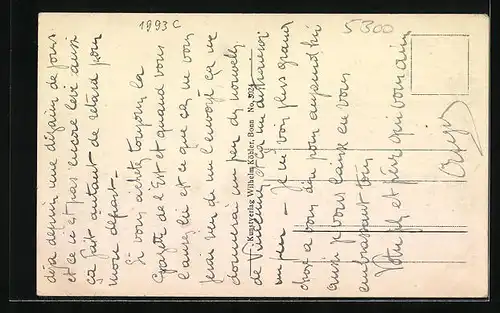 1993 C
5300
déjà depuis une dizaine de jours
et ce n'est pas encore levé aussi
ça fait autant de retard pour
mon départ -
Si vous achetez toujours la
Gazette de l'Est et quand vous
l'aurez lue est ce que ça ne vous
ferait rien de me l'envoyer ça me
donnerai un peu des nouvelles
de et ça me distrairai
un peu - Je ne vois plus grand
chose à vous dire pour aujourd'hui
aussi je vous laisse en vous
embrassant tous
Votre fils et frère qui vous aime
Kunstverlag Wilhelm Köhler, Bonn No. 5024